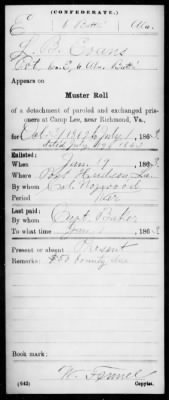 (CONFEDERATE.)
E 6 Batt. Ala.
L. B. Evans
Co. E, 6 Ala. Batt.
Appears on
Muster Roll
of a detachment of paroled and exchanged pris-
oners at Camp Lee, near Richmond, Va.,
for to July 1, 1863
dated July 1863
Enlisted:
When 186
Where Port Hudson, La.
By whom Norwood
Period War
Last paid:
By whom Capt. Baker
To what time 186
Present or absent Present
Remarks: $50 bounty due
Book mark:
W. Fennel
(642) Copyist.